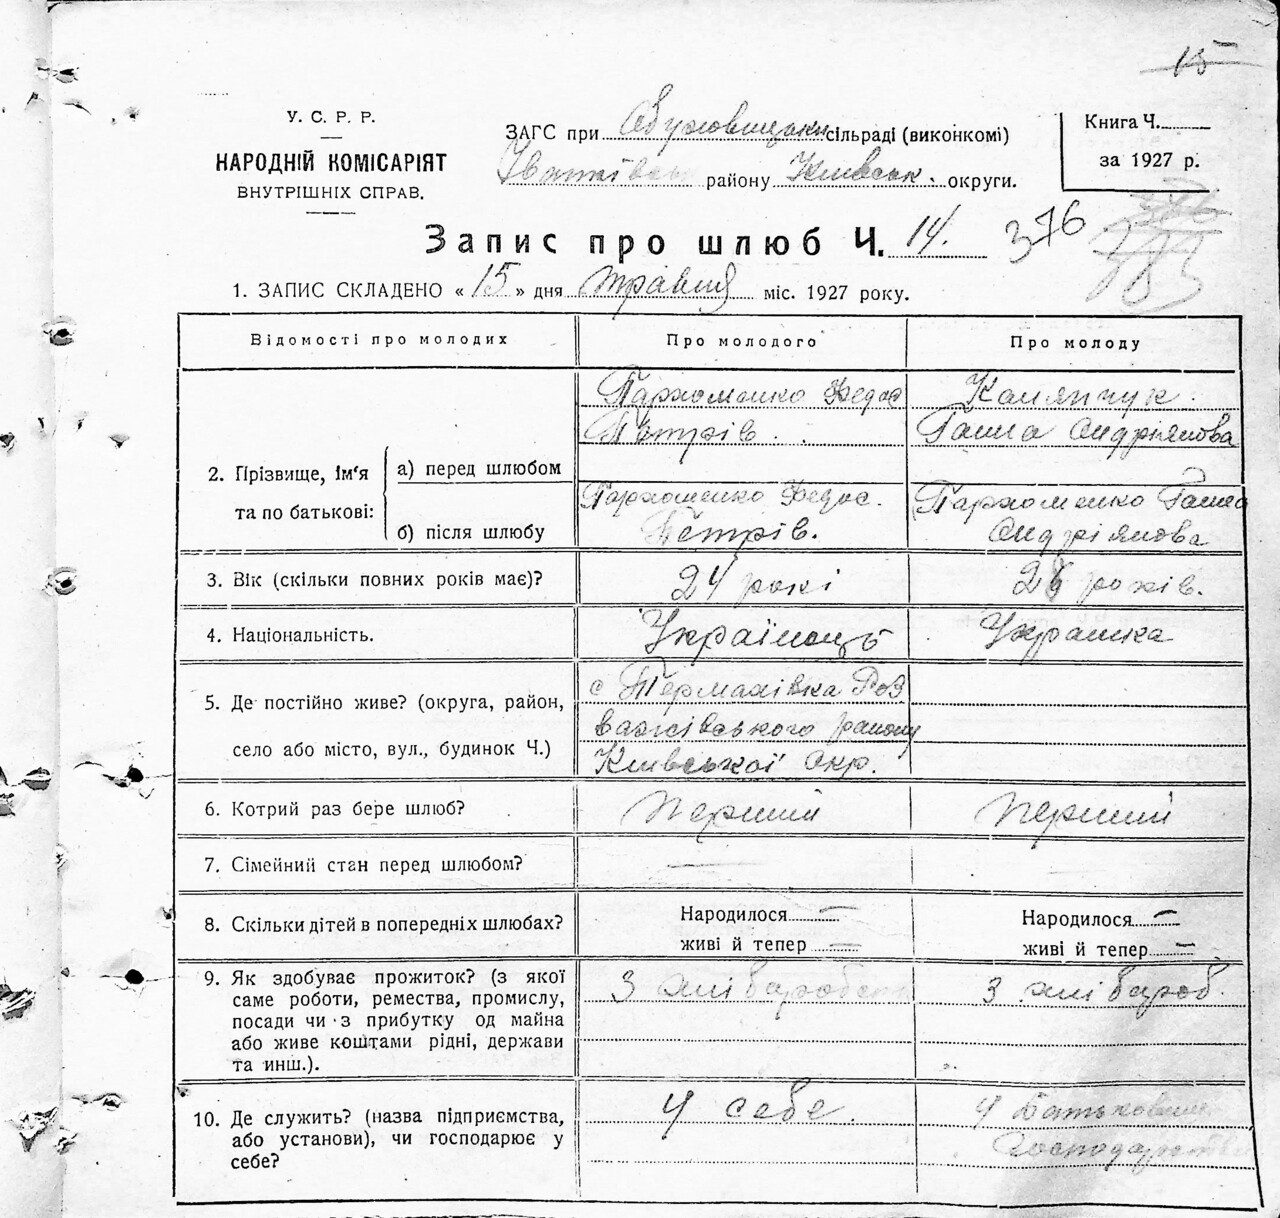 15
У. С. Р. Р.
НАРОДНІЙ КОМІСАРІЯТ
ВНУТРІШНІХ СПРАВ.
ЗАГС при сільраді (виконкомі)
району Київськ. округи.
Книга Ч.
за 1927 р.
Запис про шлюб Ч. 14. 376
1. ЗАПИС СКЛАДЕНО « 15 » дня травня міс. 1927 року.
Відомості про молодих
Про молодого
Про молоду
2. Прізвище, ім'я та по батькові:
а) перед шлюбом
Пархоменко Федос
Петрів.
Ганна Андріянова
б) після шлюбу
Пархоменко Федос.
Петрів.
Пархоменко Ганна
Андріянова
3. Вік (скільки повних років має)?
24 рокі
років.
4. Національність.
Українець
Украінка
5. Де постійно живе? (округа, район,
село або місто, вул., будинок Ч.)
с Термахівка Роз
важівського району
Київської Окр.
6. Котрий раз бере шлюб?
Перший
Перший
7. Сімейний стан перед шлюбом?
—
8. Скільки дітей в попередніх шлюбах?
Народилося —
живі й тепер —
Народилося —
живі й тепер —
9. Як здобуває прожиток? (з якої
саме роботи, ремества, промислу,
посади чи з прибутку од майна
або живе коштами рідні, держави
та инш.).
З хліборобства
З хлібороб.
10. Де служить? (назва підприємства,
або установи), чи господарює у
себе?
У себе.
У Батьковим
Господарстві